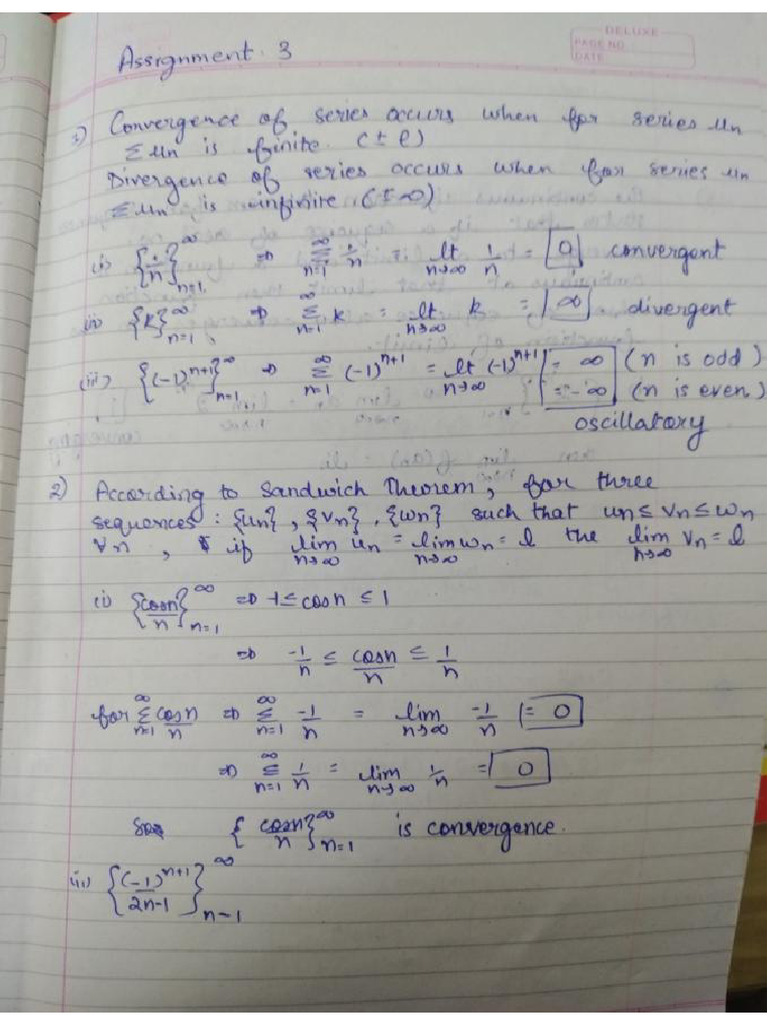 DELUXE
PAGE NO.:
DATE
Assignment. 3
1) Convergence of series occurs when for series un
Σun is finite. (± l)
Divergence of series occurs when for series un
Σun is infinite (± ∞)
(i) {1/n}∞n=1. ⇒ ∞Σn=1 1/n = lt n→∞ 1/n = 0 convergent
(ii) {k}∞n=1, ⇒ ∞Σn=1 k = lt n→∞ k = ∞ divergent
(iii) {(-1)^n+1}∞n=1 ⇒ ∞Σn=1 (-1)^n+1 = lt n→∞ (-1)^n+1 = ∞ (n is odd)
= -∞ (n is even)
oscillatory
2) According to Sandwich Theorem, for three
sequences : {un}, {vn}, {wn} such that un ≤ vn ≤ wn
∀n, if lim n→∞ un = lim n→∞ wn = l the lim n→∞ vn = l
(i) {cosn/n}∞n=1 ⇒ -1 ≤ cosn ≤ 1
⇒ -1/n ≤ cosn/n ≤ 1/n
for ∞Σn=1 cosn/n ⇒ ∞Σn=1 -1/n = lim n→∞ -1/n = 0
⇒ ∞Σn=1 1/n = lim n→∞ 1/n = 0
{cosn/n}∞n=1 is convergence.
(ii) {(-1)^n+1/2n-1}∞n-1